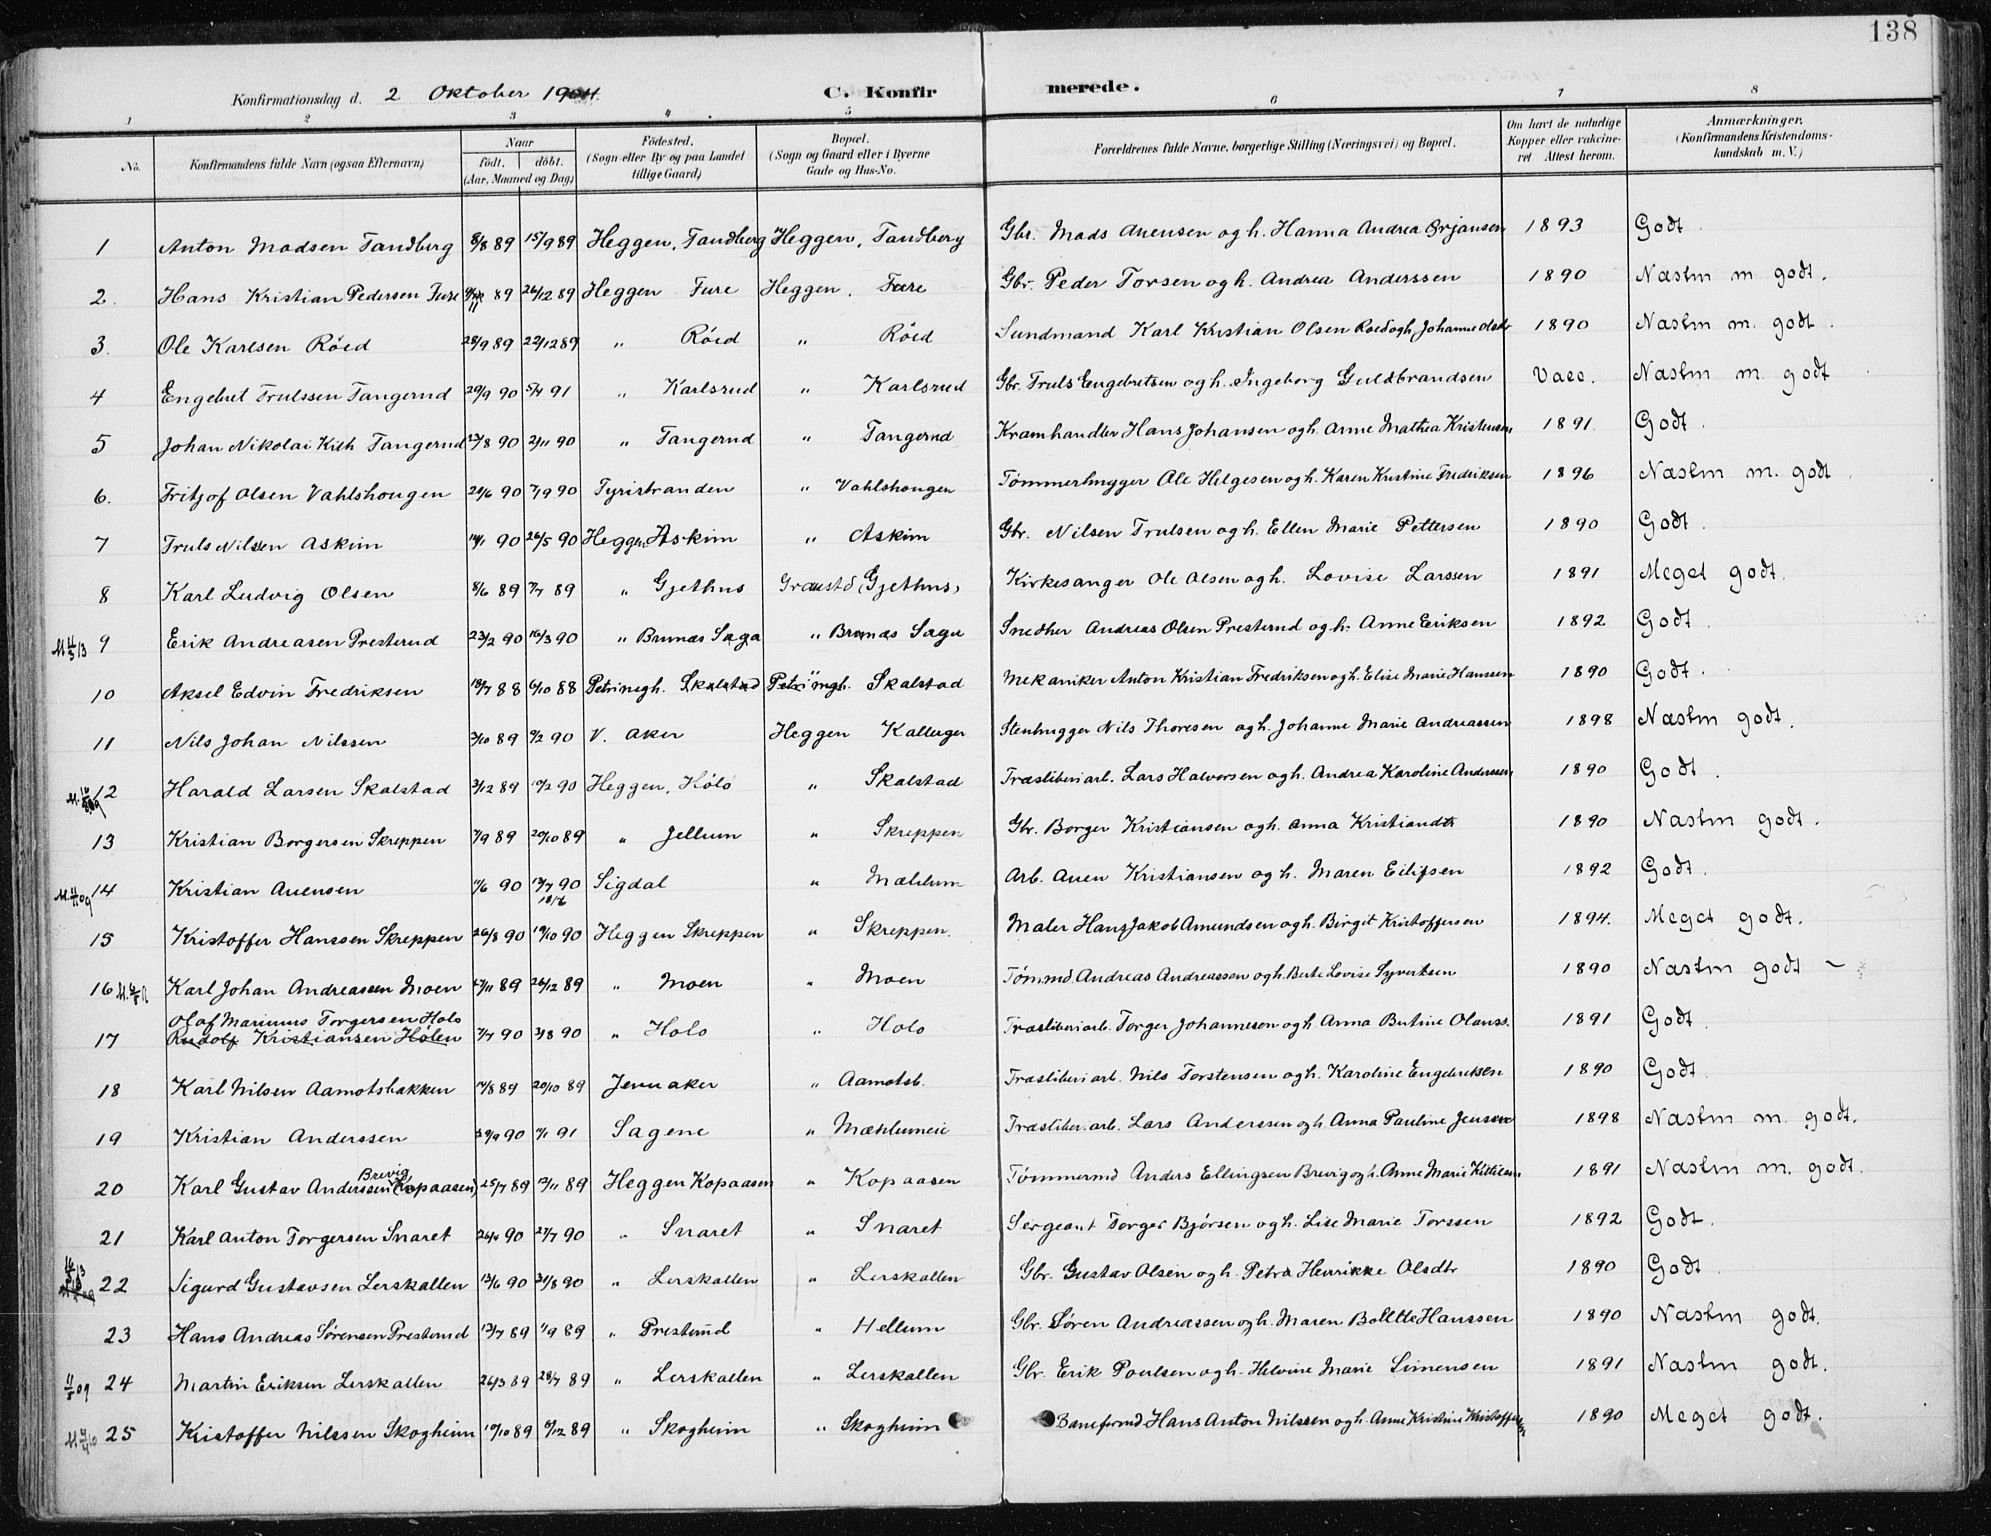 138
Konfirmationsdag d. 2 Oktober 1904. C. Konfirmerede.
1 2 3 4 5 6 7 8
No. Konfirmandens fulde Navn (ogsaa Efternavn) Naar født. døbt. (Aar, Maaned og Dag) Fødested. (Sogn eller By og paa Landet tillige Gaard) Bopæl. (Sogn og Gaard eller i Byerne Gade og Hus-No. Forældrenes fulde Navne, borgerlige Stilling (Næringsvei) og Bopæl. Om havt de naturlige Kopper eller vakcineret Attest herom. Anmærkninger. (Konfirmandens Kristendomskundskab m. V.)
1 Anton Madsen Tandberg 8/8 89 15/9 89 Heggen, Tandberg Heggen, Tandberg Gbr. Mads Auensen og h. Hanna Andrea Ørjansen 1893 Godt.
2. Hans Kristian Pedersen Fure 89 26/12 89 Heggen Fure Heggen. Fure Gbr. Peder Torsen og h. Andrea Anderssen 1890 Nastm m godt.
3. Ole Karlsen Röed 28/9 89 22/12 89 " Röed " Röed Sundmand Karl Kristian Olsen Roed og h. Johanne Olsdr 1890 Nastm m. godt.
4 Engebret Trulssen Tangerud 29/9 90 5/4 91 " Karlsrud " Karlsrud Gbr. Truls Engebretsen og h. Ingeborg Guldbrandsen Vacc. Nastm m. godt
5 Johan Nikolai Kith Tangerud 23/8 90 2/11 90 " Tangerud " Tangerud Kramhandler Hans Johansen og h. Anne Mathea Kristensen 1891. Godt.
6. Fritjof Olsen Vahlshougen 20/6 90 7/9 90 Tyristranden " Vahlshougen Tømmerhugger Ole Helgesen og h. Karen Kristine Fredriksen 1896 Nastm m. godt.
7 Truls Nilsen Askim 90 26/5 90 Heggen Askim " Askim Gbr. Nilsen Trulsen og h. Ellen Marie Pettersen 1890 Godt.
8 Karl Ludvig Olsen 8/6 89 7/7 89 " Gjethus Graustd (Gjethus) Kirkesanger Ole Olsen og h. Lovise Larssen 1891 Meget godt.
9 Erik Andreasen Presterud 23/2 90 16/3 90 " Brunæs Saga " Brunæs Saga Snedker Andreas Olsen Presterud og h. Anne Eriksen 1892 Godt.
10 Aksel Edvin Fredriksen 18/7 88 6/10 88 Petrimegh. Skalstad Petrimgh. Skalstad Mekaniker Anton Kristian Fredriksen og h. Elise Marie Hanssen 1890 Godt.
11 Nils Johan Nilssen 3/10 89 9/2 90 V. Aker Heggen Kallerger Stenhugger Nils Thoresen og h. Johanne Marie Andreassen 1898 Nastm godt.
12 Harald Larsen Skalstad 3/12 89 10/2 90 Heggen, Hölö " Skalstad Træsliberiarb. Lars Halvorsen og h. Andrea Karoline Anderssen 1890 Godt.
13 Kristian Borgersen Skreppen 7/9 89 20/10 89 " Jellum " Skreppen Gbr. Borger Kristiansen og h. Anna Kristiandtr 1890 Nastm godt.
14 Kristian Auensen 11/6 90 13/7 90 Sigdal " Mæhlum Arb. Auen Kristiansen og h. Maren Eilifsen 1892 Godt.
15 Kristoffer Hanssen Skreppen 26/8 90 19/10 90 Heggen Skreppen " Skreppen. Maler Hans Jakob Amundsen og h. Birgit Kristoffersen 1894. Meget godt.
16 Karl Johan Andreassen Moen 17/11 89 26/12 89 " Moen " Moen Tømmd Andreas Andreassen og h. Berte Lovise Syvertsen 1890 Nastm godt -
Olaf Marinius Torgersen Holo
17 Rudolf Kristiansen Hølen 7/7 90 3/8 90 " Holo " Holo Træsliberiarb. Torger Johannesen og h. Anna Bertine Olauss. 1891 Godt.
18 Karl Nilsen Aamotsbakken 14/8 89 20/10 89 Jevnaker " Aamotsb. Træsliberiarb. Nils Torstensen og h. Karoline Engebretsen 1890 Godt.
19 Kristian Anderssen 90 11/1 91 Sagene " Mæhlumeie Træsliberiarb. Lars Anderssen og h. Anna Pauline Jenssen 1898 Nastm m. godt.
Brevig
20 Karl Gustav Anderssen (Kopaasen) 25/7 89 89 Heggen Kopaasen " Kopaasen Tømmermd Anders Ellingsen Brevig og h. Anne Marie Kittilsen 1891 Nastm m. godt.
21 Karl Anton Torgersen Snaret 90 27/7 90 " Snaret " Snaret Sergeant Torger Bjørsen og h. Lise Marie Torssen 1892 Godt.
22 Sigurd Gustavsen Lerskallen 13/6 90 31/8 90 " Lerskallen " Lerskallen Gbr. Gustav Olsen og h. Petra Henrikke Olsdtr 1890 Godt.
23 Hans Andreas Sørensen Presterud 13/7 89 1/9 89 " Presterud " Hellum Gbr. Søren Andreassen og h. Maren Bolette Hanssen 1890 Nastm godt.
24 Martin Eriksen Lerskallen 26/3 89 28/7 89 " Lerskallen " Lerskallen Gbr. Erik Poulsen og h. Helvine Marie Simensen 1891 Nastm godt.
25 Kristoffer Nilssen Skogheim 10/10 89 8/12 89 " Skogheim " Skogheim Baneformd Hans Anton Nilssen og h. Anne Kristine Kristoffersen 1890 Meget godt.